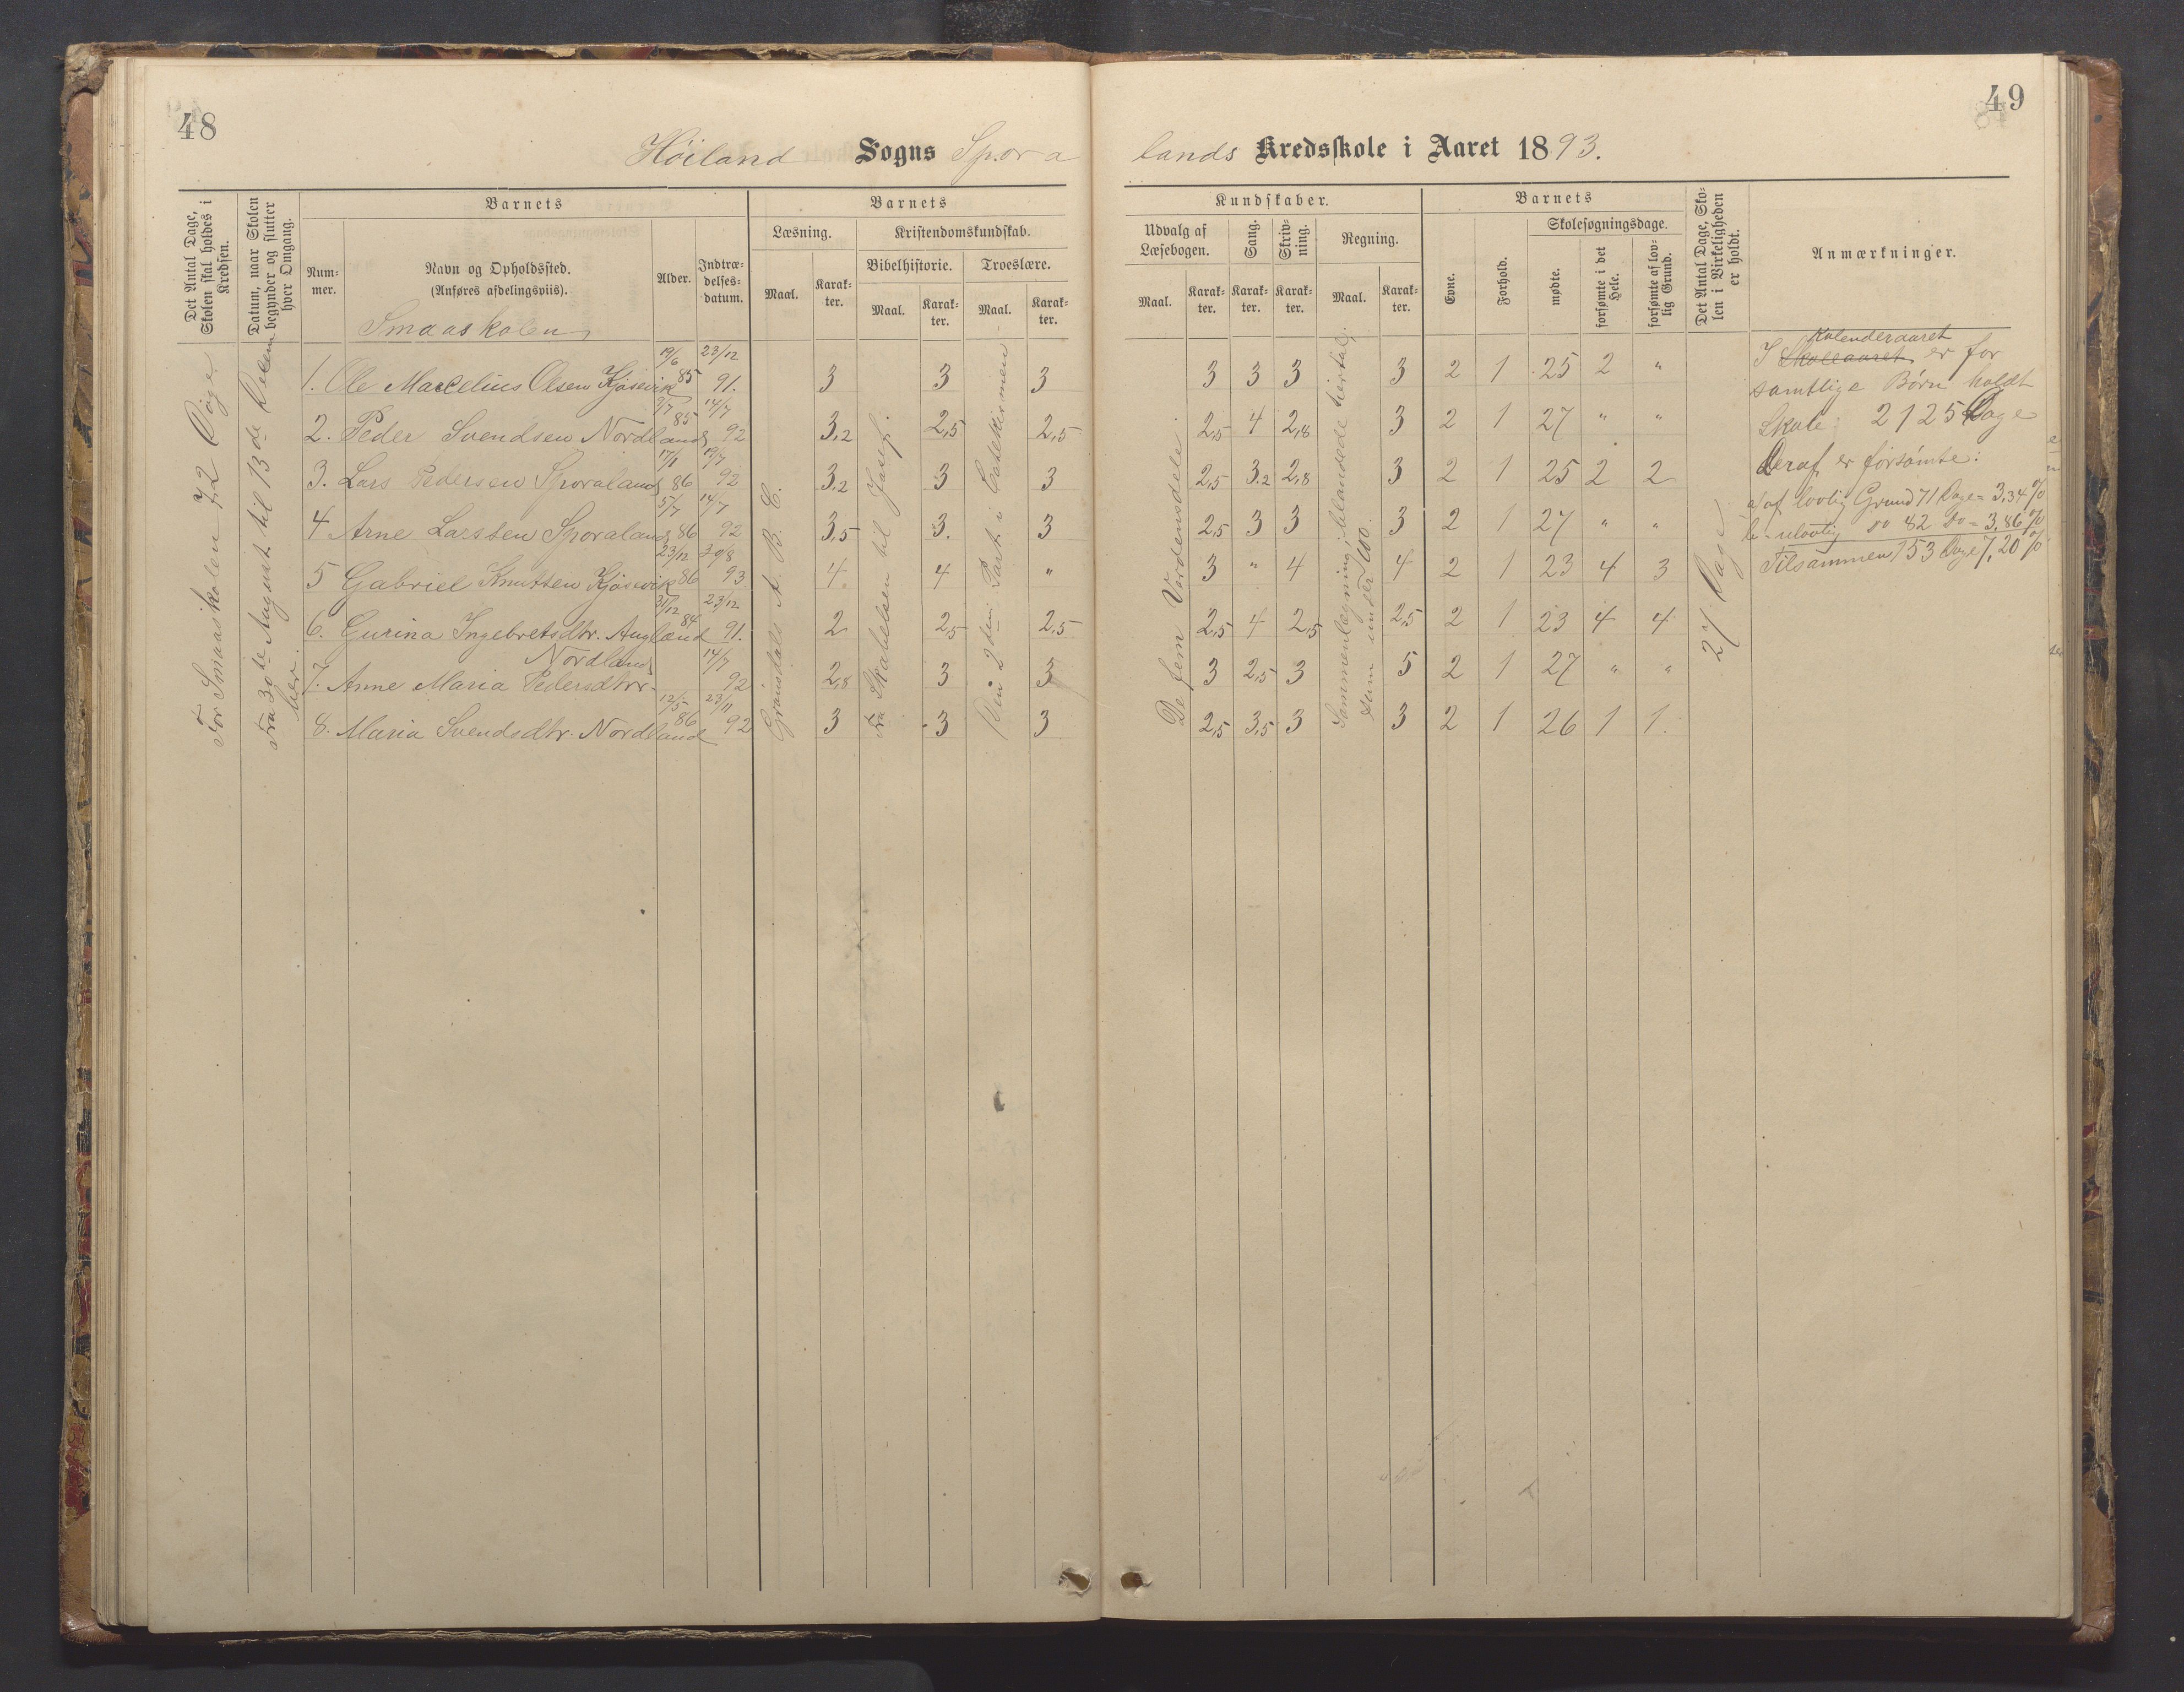 48
49
Höiland Sogns Spora
lands Kredsskole i Aaret 1893.
Det Antal Dage, Skolen skal holdes i Kredsen.
Datum, naar Skolen begynder og slutter hver Omgang.
Barnets
Num-
mer.
Navn og Opholdssted.
(Anføres afdelingsviis).
Alder.
Indtræ-
delses-
datum.
Barnets
Læsning.
Kristendomskundskab.
Bibelhistorie.
Troeslære.
Maal.
Karak-
ter.
Maal.
Karak-
ter.
Maal.
Karak-
ter.
Kundskaber.
Udvalg af
Læsebogen.
Sang.
Skriv-
ning.
Regning.
Maal.
Karak-
ter.
Karak-
ter.
Karak-
ter.
Maal.
Karak-
ter.
Barnets
Evne.
Forhold.
Skolesøgningsdage.
mødte.
forsømte i det Hele.
forsømte af lov-
lig Grund.
Det Antal Dage, Sko-
len i Virkeligheden
er holdt.
Anmærkninger.
Smaaskolen
For Smaaskolen 72 Dage
Fra 30te August til 13de Decem
ber.
Grånsdals A. B. C.
Fra Skabelsen til Josef.
Den 2den Part i Catekismen
De fem Verdensdele.
Sammenlægning i blandede tiertal,
sum under 100.
27 Dage
1. Ole Marcelius Olsen Kjösevik 19/6 85 23/12 91. 3 3 3 3 3 3 3 2 1 25 2 "
2. Peder Svendsen Nordland 9/7 85 14/7 92 3,2 2,5 2,5 2,5 4 2,8 3 2 1 27 " "
3. Lars Pedersen Sporaland 17/1 86 19/7 92 3,2 3 3 2,5 3,2 2,8 3 2 1 25 2 2
4 Arne Larssen Sporaland 5/7 86 14/7 92 3,5 3. 3 2,5 3 3 3 2 1 27 " "
5 Gabriel Knutsen Kjösevik 23/12 86 30/8 93 4 4 " 3 " 4 4 2 1 23 4 3
6. Gurina Ingebretsdtr. Augland 31/12 84 23/12 91. 2 2,5 2,5 2,5 4 2,5 2,5 2 1 23 4 4
Nordland
7. Anne Maria Pedersdtr. 14/7 92 2,8 3 3 3 2,5 3 5 2 1 27 " "
8. Maria Svendsdtr. Nordland 12/5 86 23/11 92 3 3 3 2,5 3,5 3 3 2 1 26 1 1.
Kalenderaaret
I Skoleaaret er for
samtlige Børn holdt
Skole: 2125 Dage
Deraf er forsömte:
a af lovlig Grund 71 Dage = 3,34 %
b - ulovlig do 82 do = 3,86 %
Tilsammen 153 Dage 7,20 %